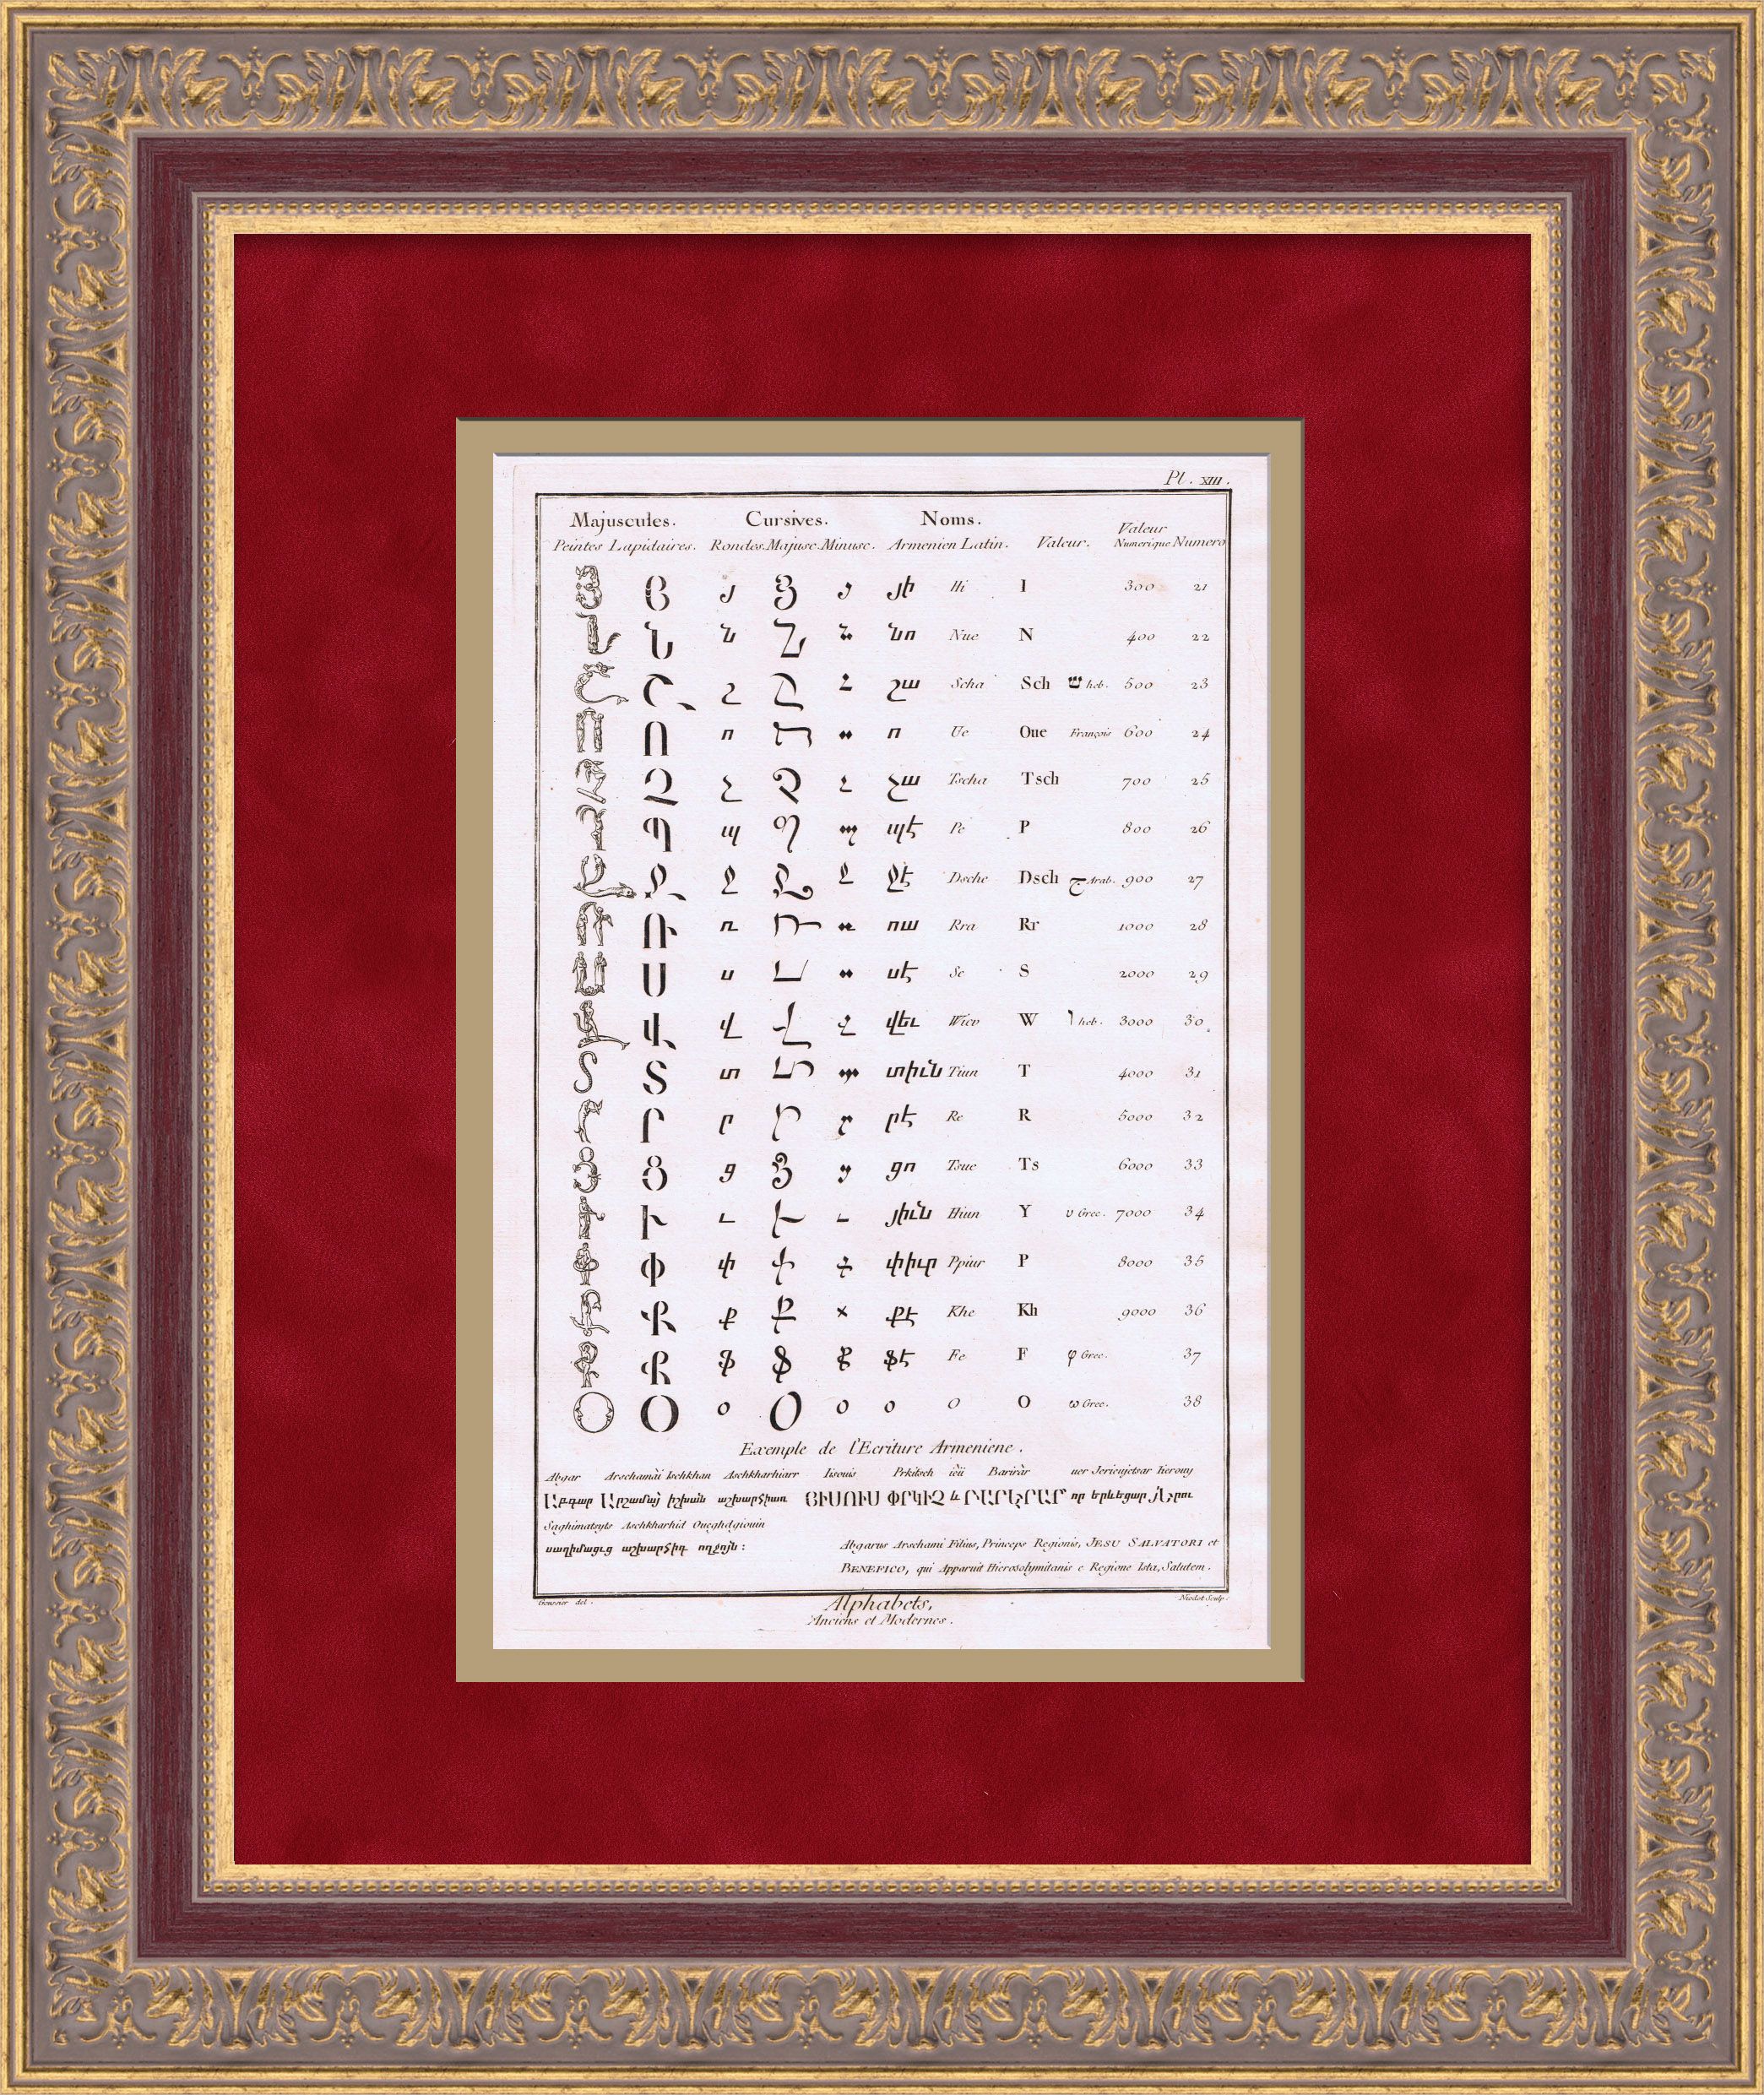 Pl. XIII.
Majuscules. Cursives. Noms. Valeur
Peintes Lapidaires. Rondes. Majusc. Minusc. Armenien Latin. Valeur. Numerique Numero
Յ յ Յ յ յի Hi I 300 21
Ն ն Ն ն նո Nue N 400 22
Շ շ Շ շ շա Scha Sch ש heb. 500 23
Ո ո Ո ո ո Ue Oue François 600 24
Չ չ Չ չ չա Tscha Tsch 700 25
Պ պ Պ պ պէ Pe P 800 26
Ջ ջ Ջ ջ ջէ Dsche Dsch ج Arab. 900 27
Ռ ռ Ռ ռ ռա Rra Rr 1000 28
Ս ս Ս ս սէ Se S 2000 29
Վ վ Վ վ վեւ Wiev W ו heb. 3000 30
Տ տ Տ տ տիւն Tiun T 4000 31
Ր ր Ր ր րէ Re R 5000 32
Ց ց Ց ց ցո Tsue Ts 6000 33
Ւ ւ Ւ ւ յիւն Hiun Y υ Grec. 7000 34
Փ փ Փ փ փիւր Ppiur P 8000 35
Ք ք Ք ք քէ Khe Kh 9000 36
Ֆ ֆ Ֆ ֆ ֆէ Fe F φ Grec. 37
Օ օ Օ օ օ O O ω Grec. 38
Exemple de l'Ecriture Armeniene.
Abgar Arschamài Ischkhan Aschkharhiarr Iisouis Prkitsch ieu Bariràr uer Jerieujetsar Iierouy
Աբգար Արշամայ իշխան աշխարհիառ ՅԻՍՈՒՍ ՓՐԿԻՉ և ԲԱՐԵՐԱՐ որ երևեցար յԵրու
Saghimatsyts Aschkharhid Oueghdgiouin
սաղիմացւց աշխարհիդ ողջոյն :
Abgarus Arschami Filius, Princeps Regionis, JESU SALVATORI et
BENEFICO, qui Apparuit Hierosolymitanis e Regione Ista, Salutem.
Goussier del. Niodot Sculp.
Alphabets,
Anciens et Modernes.